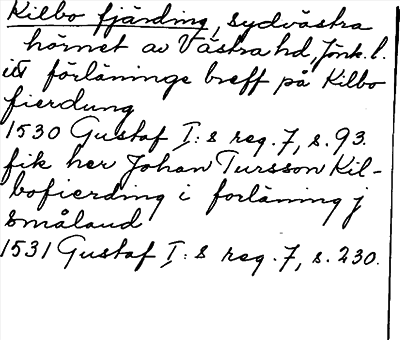 Kilbo fjärding, sydvästra
hörnet av Västra hd, Jönk. l.
itt förläninge breff på Kilbo
fierdung
1530 Gustaf I:s reg. 7, s. 93.
fik her Johan Tursson Kil-
bofierding i forläning j
småland
1531 Gustaf I:s reg. 7, s. 230.